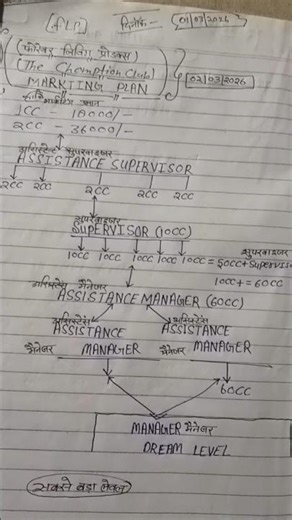 (FLP) दिनांक- 01/03/2026
(फॉरेवर लिविंग प्रोडक्ट्स)
(The Chemption Club) 02/03/2026
MARKTING PLAN
मार्केटिंग प्लान
1CC - 18000/-
2CC - 36000/-
असिस्टेंट सुपरवाइजर
ASSISTANCE SUPERVISOR
2CC 2CC 2CC 2CC 2CC
सुपरवाइजर
SUPERVISOR (10CC)
सुपरवाइजर
10CC 10CC 10CC 10CC 10CC = 50CC+SUPERVISOR
10CC+ = 60CC
असिस्टेंट मैनेजर
ASSISTANCE MANAGER (60CC)
असिस्टेंस असिस्टेंस
ASSISTANCE ASSISTANCE
मैनेजर MANAGER मैनेजर MANAGER
60CC
MANAGER मैनेजर
DREAM LEVEL
सबसे बड़ा लेवल